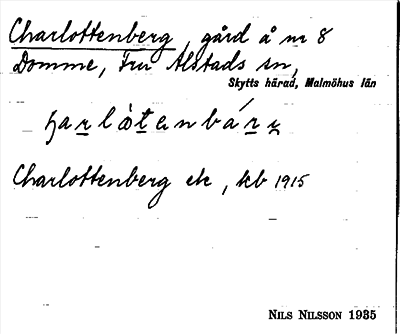 Charlottenberg, gård å nr 8
Domme, Fru Alstads sn,
Skytts härad, Malmöhus län
Charlottenberg ek, kb 1915
NILS NILSSON 1935